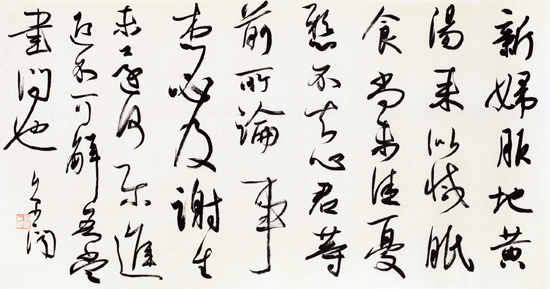 新婦服地黄
湯来似減眠
食尚未佳憂
懸不去心君等
前所論事
想必及謝生
未還何尔進
退不可解吾當
書問也